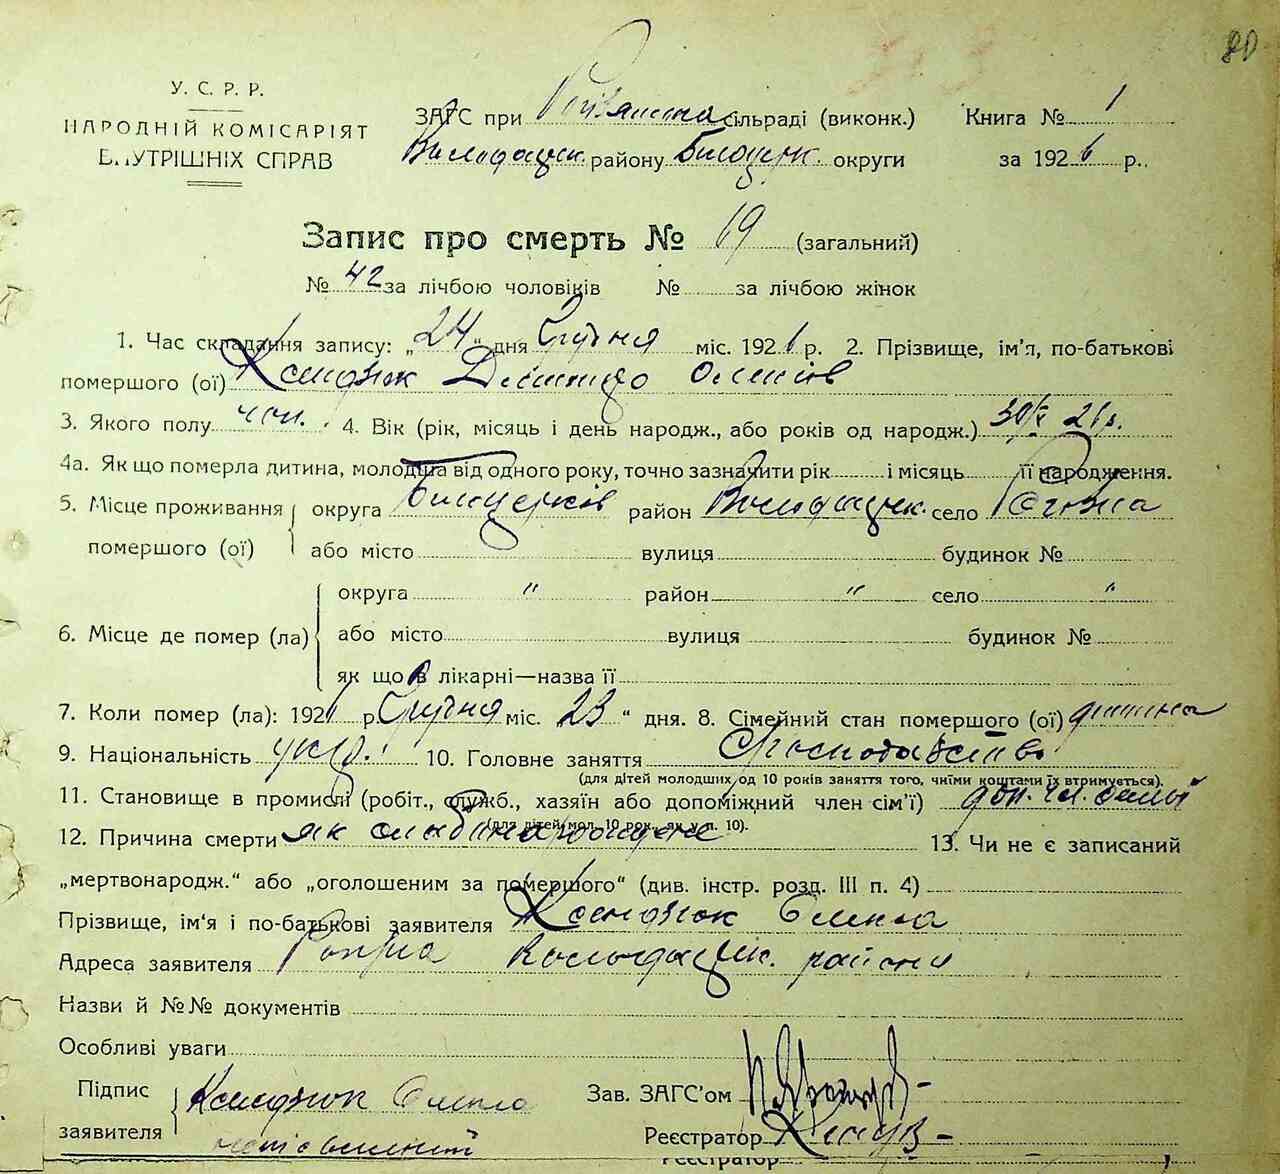 80
У. С. Р. Р.
НАРОДНІЙ КОМІСАРІЯТ
ВНУТРІШНІХ СПРАВ
ЗАГС при сільраді (виконк.) Книга № 1
Володарськ. району Білоцерк. округи за 1926 р.
Запис про смерть № 69 (загальний)
№ 42 за лічбою чоловіків № за лічбою жінок
1. Час складання запису: „24“ дня Грудня міс. 1926 р. 2. Прізвище, ім'я, по-батькові
помершого (ої) Ксендзюк
3. Якого полу чол. 4. Вік (рік, місяць і день народж., або років од народж.)
4а. Як що померла дитина, молодша від одного року, точно зазначити рік і місяць її народження.
5. Місце проживання округа Білоцерків район Володарськ. село
помершого (ої) або місто вулиця будинок №
округа " район " село "
6. Місце де помер (ла) або місто вулиця будинок №
як що в лікарні—назва її
7. Коли помер (ла): 1926 р. Грудня міс. 23 " дня. 8. Сімейний стан помершого (ої) дитина
9. Національність укр. 10. Головне заняття Господарство
(для дітей молодших од 10 років заняття того, чиїми коштами їх втримується).
11. Становище в промислі (робіт., служб., хазяїн або допоміжний член сім'ї) доп. чл. семьї
(для дітей мол. 10 рок. як у п. 10).
12. Причина смерти як 13. Чи не є записаний
„мертвонародж.“ або „оголошеним за помершого“ (див. інстр. розд. III п. 4)
Прізвище, ім'я і по-батькові заявителя Ксендзюк
Адреса заявителя Володарськ. району
Назви й №№ документів
Особливі уваги
Підпис Ксендзюк Зав. ЗАГС'ом
заявителя Реєстратор
Реєстратор